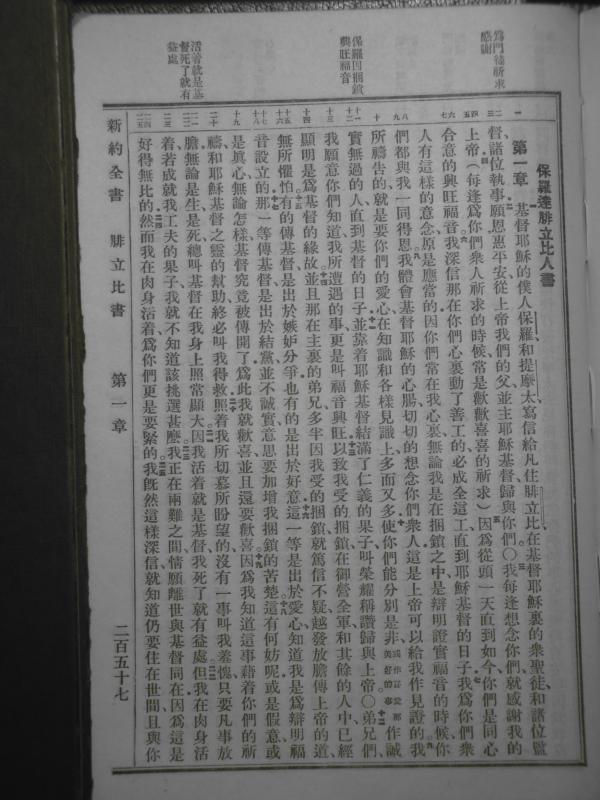 為門徒祈求感謝
保羅因捆鎖興旺福音
活着就是基督死了就有益處
保羅達腓立比人書
第一章　基督耶穌的僕人保羅和提摩太寫信給凡住腓立比在基督耶穌裏的衆聖徒和諸位監
督諸位執事願恩惠平安從上帝我們的父並主耶穌基督歸與你們〇我每逢想念你們就感謝我的
上帝（每逢爲你們衆人祈求的時候常是歡歡喜喜的祈求）因爲從頭一天直到如今你們是同心
合意的興旺福音我深信那在你們心裏動了善工的必成全這工直到耶穌基督的日子我爲你們衆
人有這樣的意念原是應當的因你們常在我心裏無論我是在捆鎖之中是辯明證實福音的時候你
們都與我一同得恩我體會基督耶穌的心腸切切的想念你們衆人這是上帝可以給我作見證的我
所禱告的就是要你們的愛心在知識和各樣見識上多而又多使你們能分別是非或作喜愛那美好的事作誠
實無過的人直到基督的日子並靠着耶穌基督結滿了仁義的果子叫榮耀稱讚歸與上帝〇弟兄們
我願意你們知道我所遭遇的事更是叫福音興旺以致我受的捆鎖在御營全軍和其餘的人中已經
顯明是爲基督的緣故並且那在主裏的弟兄多半因我受的捆鎖就篤信不疑越發放膽傳上帝的道
無所懼怕有的傳基督是出於嫉妒分爭也有的是出於好意這一等是出於愛心知道我是爲辯明福
音設立的那一等傳基督是出於結黨並不誠實意思要加增我捆鎖的苦楚這有何妨呢或是假意或
是真心無論怎樣基督究竟被傳開了爲此我就歡喜並且還要歡喜因爲我知道這事藉着你們的祈
禱和耶穌基督之靈的幫助終必叫我得救照着我所切慕所盼望的沒有一事叫我羞愧只要凡事放
膽無論是生是死總叫基督在我身上照常顯大因我活着就是基督我死了就有益處但我在肉身活
着若成就我工夫的果子我就不知道該挑選甚麼我正在兩難之間情願離世與基督同在因爲這是
好得無比的然而我在肉身活着爲你們更是要緊的我旣然這樣深信就知道仍要住在世間且與你
新約全書　腓立比書　第一章　二百五十七